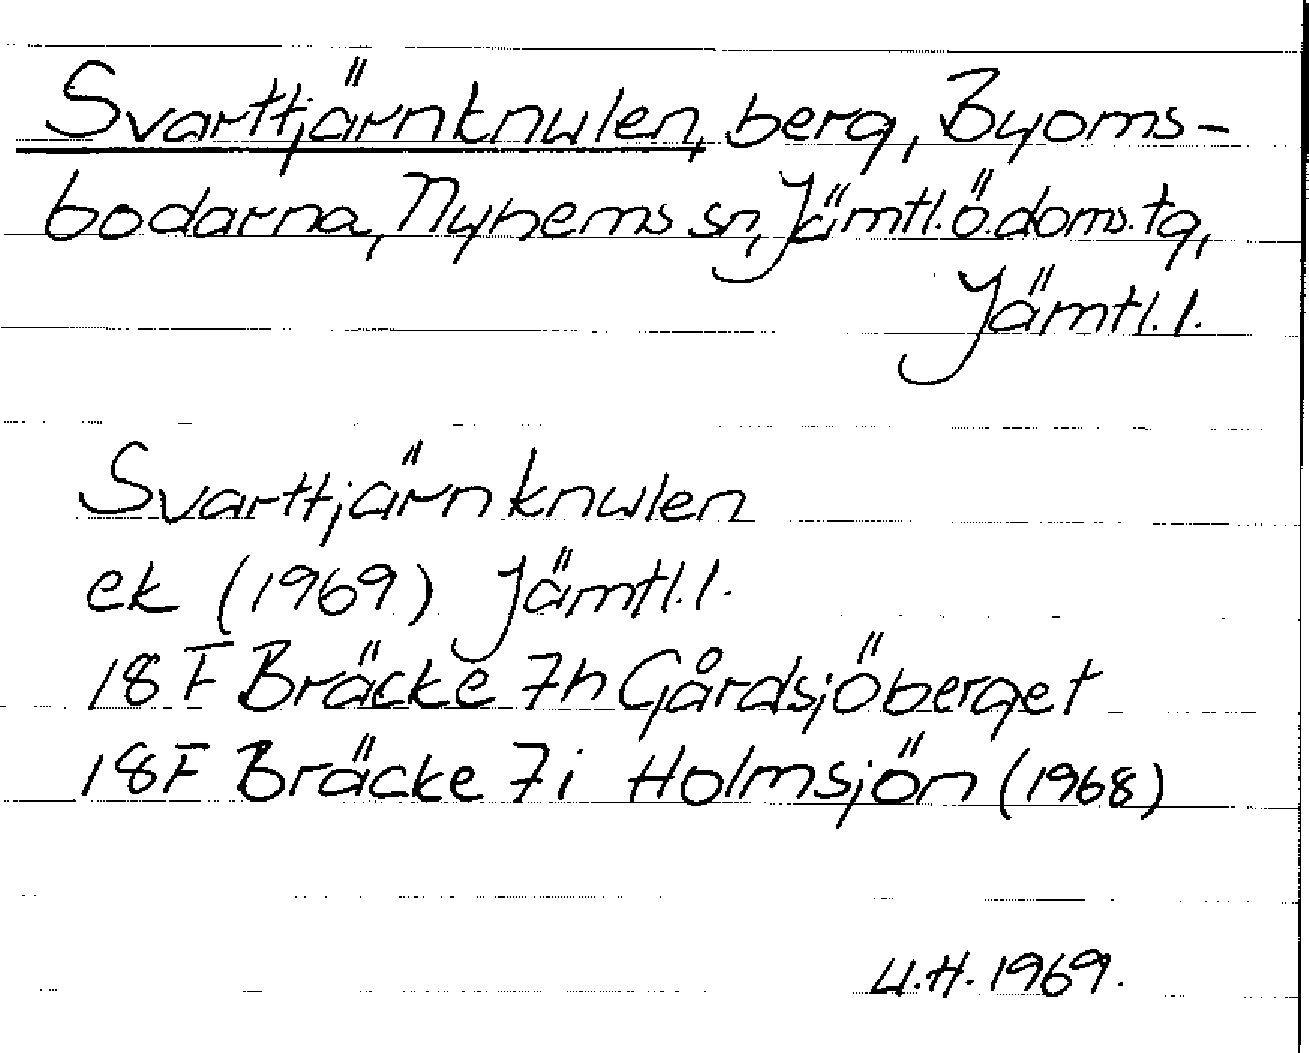 Svarttjärnknulen, berg, Byoms-
bodarna, Nyhems sn, Jämtl.ö.doms.tg,
Jämtl.l.
Svarttjärnknulen
ek (1969) Jämtl.l.
18 F Bräcke 7h Gårdsjöberget
18F Bräcke 7i Holmsjön (1968)
U.H. 1969.